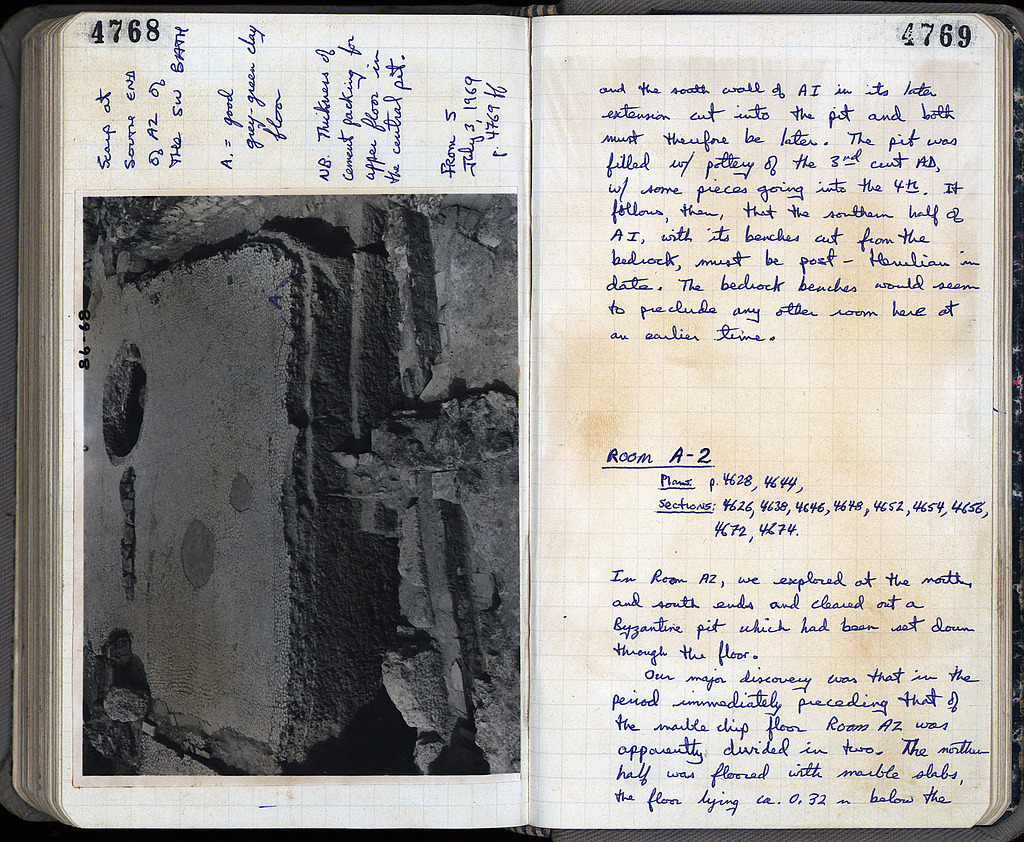 4768
Scarp at
SOUTH END
of A2 of
THE SW BATH
A. = good
grey-green clay
floor
NB. Thickness of
cement packing for
upper floor in
the central pit.
FROM S
July 3, 1969
p. 4769 ff
86-68
A
4769
and the south wall of A1 in its later
extension cut into the pit and both
must therefore be later. The pit was
filled w/ pottery of the 3rd cent AD,
w/ some pieces going into the 4th. It
follows, then, that the southern half of
A1, with its benches cut from the
bedrock, must be post-Herulian in
date. The bedrock benches would seem
to preclude any other room here at
an earlier time.
ROOM A-2
Plans: p. 4628, 4644,
Sections: 4626, 4638, 4646, 4648, 4652, 4654, 4656,
4672, 4674.
In Room A2, we explored at the north
and south ends and cleared out a
Byzantine pit which had been set down
through the floor.
Our major discovery was that in the
period immediately preceding that of
the marble chip floor Room A2 was
apparently divided in two. The northern
half was floored with marble slabs,
the floor lying ca. 0.32 m below the